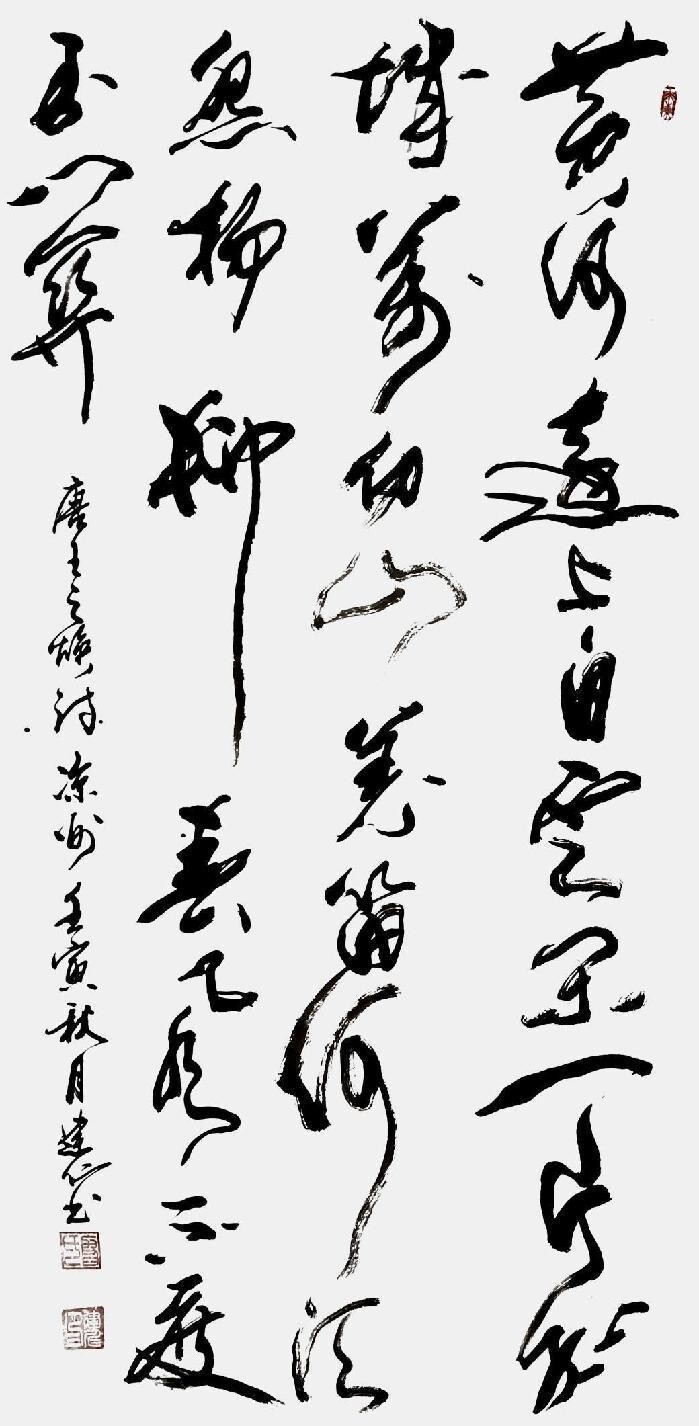 黄河遠上白雲間一片孤
城萬仞山羌笛何須
怨楊柳春風不度
玉門關
唐王之焕詩凉州壬寅秋月建书